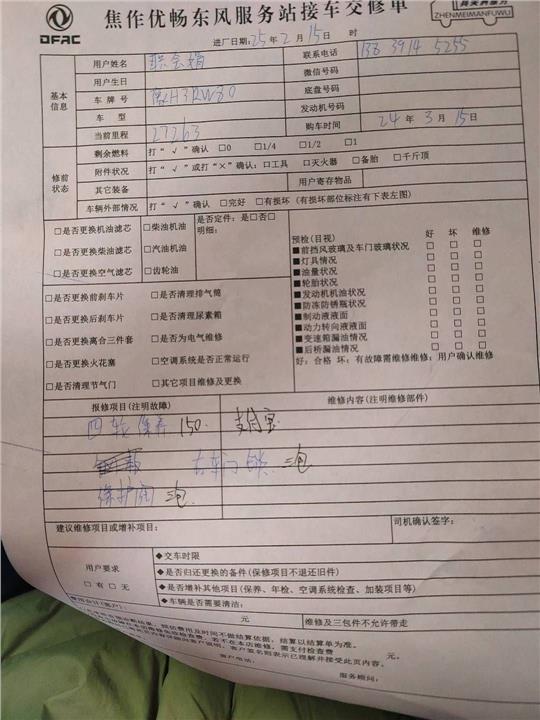 DFAC
焦作优畅东风服务站接车交修单
ZHENMEIMANFUWU
进厂日期：25年2月15日 时
基本信息
用户姓名
联系电话 138 3914 5255
用户生日
微信号码
车牌号 H3RW80
底盘号码
车型
发动机号码
当前里程 27263
购车时间 24年3月15日
修前状态
剩余燃料 打“√”确认 □0 □1/4 □1/2 □1
附件状况 打“√”或打“×”确认：□工具 □灭火器 □备胎 □千斤顶
其它装备 用户寄存物品
车辆外部情况 打“√”确认 □完好 □有损坏（有损坏部位标注有下表左图）
□是否更换机油滤芯 □柴油机油 是否定件：是□否□
□是否更换柴油滤芯 □汽油机油 明细：
□是否更换空气滤芯 □齿轮油
预检(目视) 好 坏 维修
■前挡风玻璃及车门玻璃状况 □ □ □
■灯具情况 □ □ □
■油量状况 □ □ □
■轮胎状况 □ □ □
■发动机机油状况 □ □ □
■防冻防锈瓶状况 □ □ □
■制动液液面 □ □ □
■动力转向液液面 □ □ □
■变速箱漏油情况 □ □ □
■后桥漏油情况 □ □ □
好：合格 坏：有故障需维修维修：用户确认维修
□是否更换前刹车片 □是否清理排气筒
□是否更换后刹车片 □是否清理尿素箱
□是否更换离合三件套 □是否为电气维修
□是否更换火花塞 □空调系统是否正常运行
□是否清理节气门 □其它项目维修及更换
报修项目(注明故障) 维修内容(注明维修部件)
四轮保养 150. 支付宝
右车门锁 三包
保护阀 三包
建议维修项目或增补项目：
司机确认签字：
用户要求
□有□无
◆交车时限
◆是否归还更换的备件(保修项目不退还旧件)
◆是否增补其他项目(保养、年检、空调系统检查、加装项目等)
◆车辆是否需要清洁：
元 维修及三包件不允许带走
预估费用及时间不做结算依据，结算以结算单为准。
若不在本店维修，需支付检查费 元。
客户签名则表示已理解并接受此页内容。
客户电话： 服务顾问：